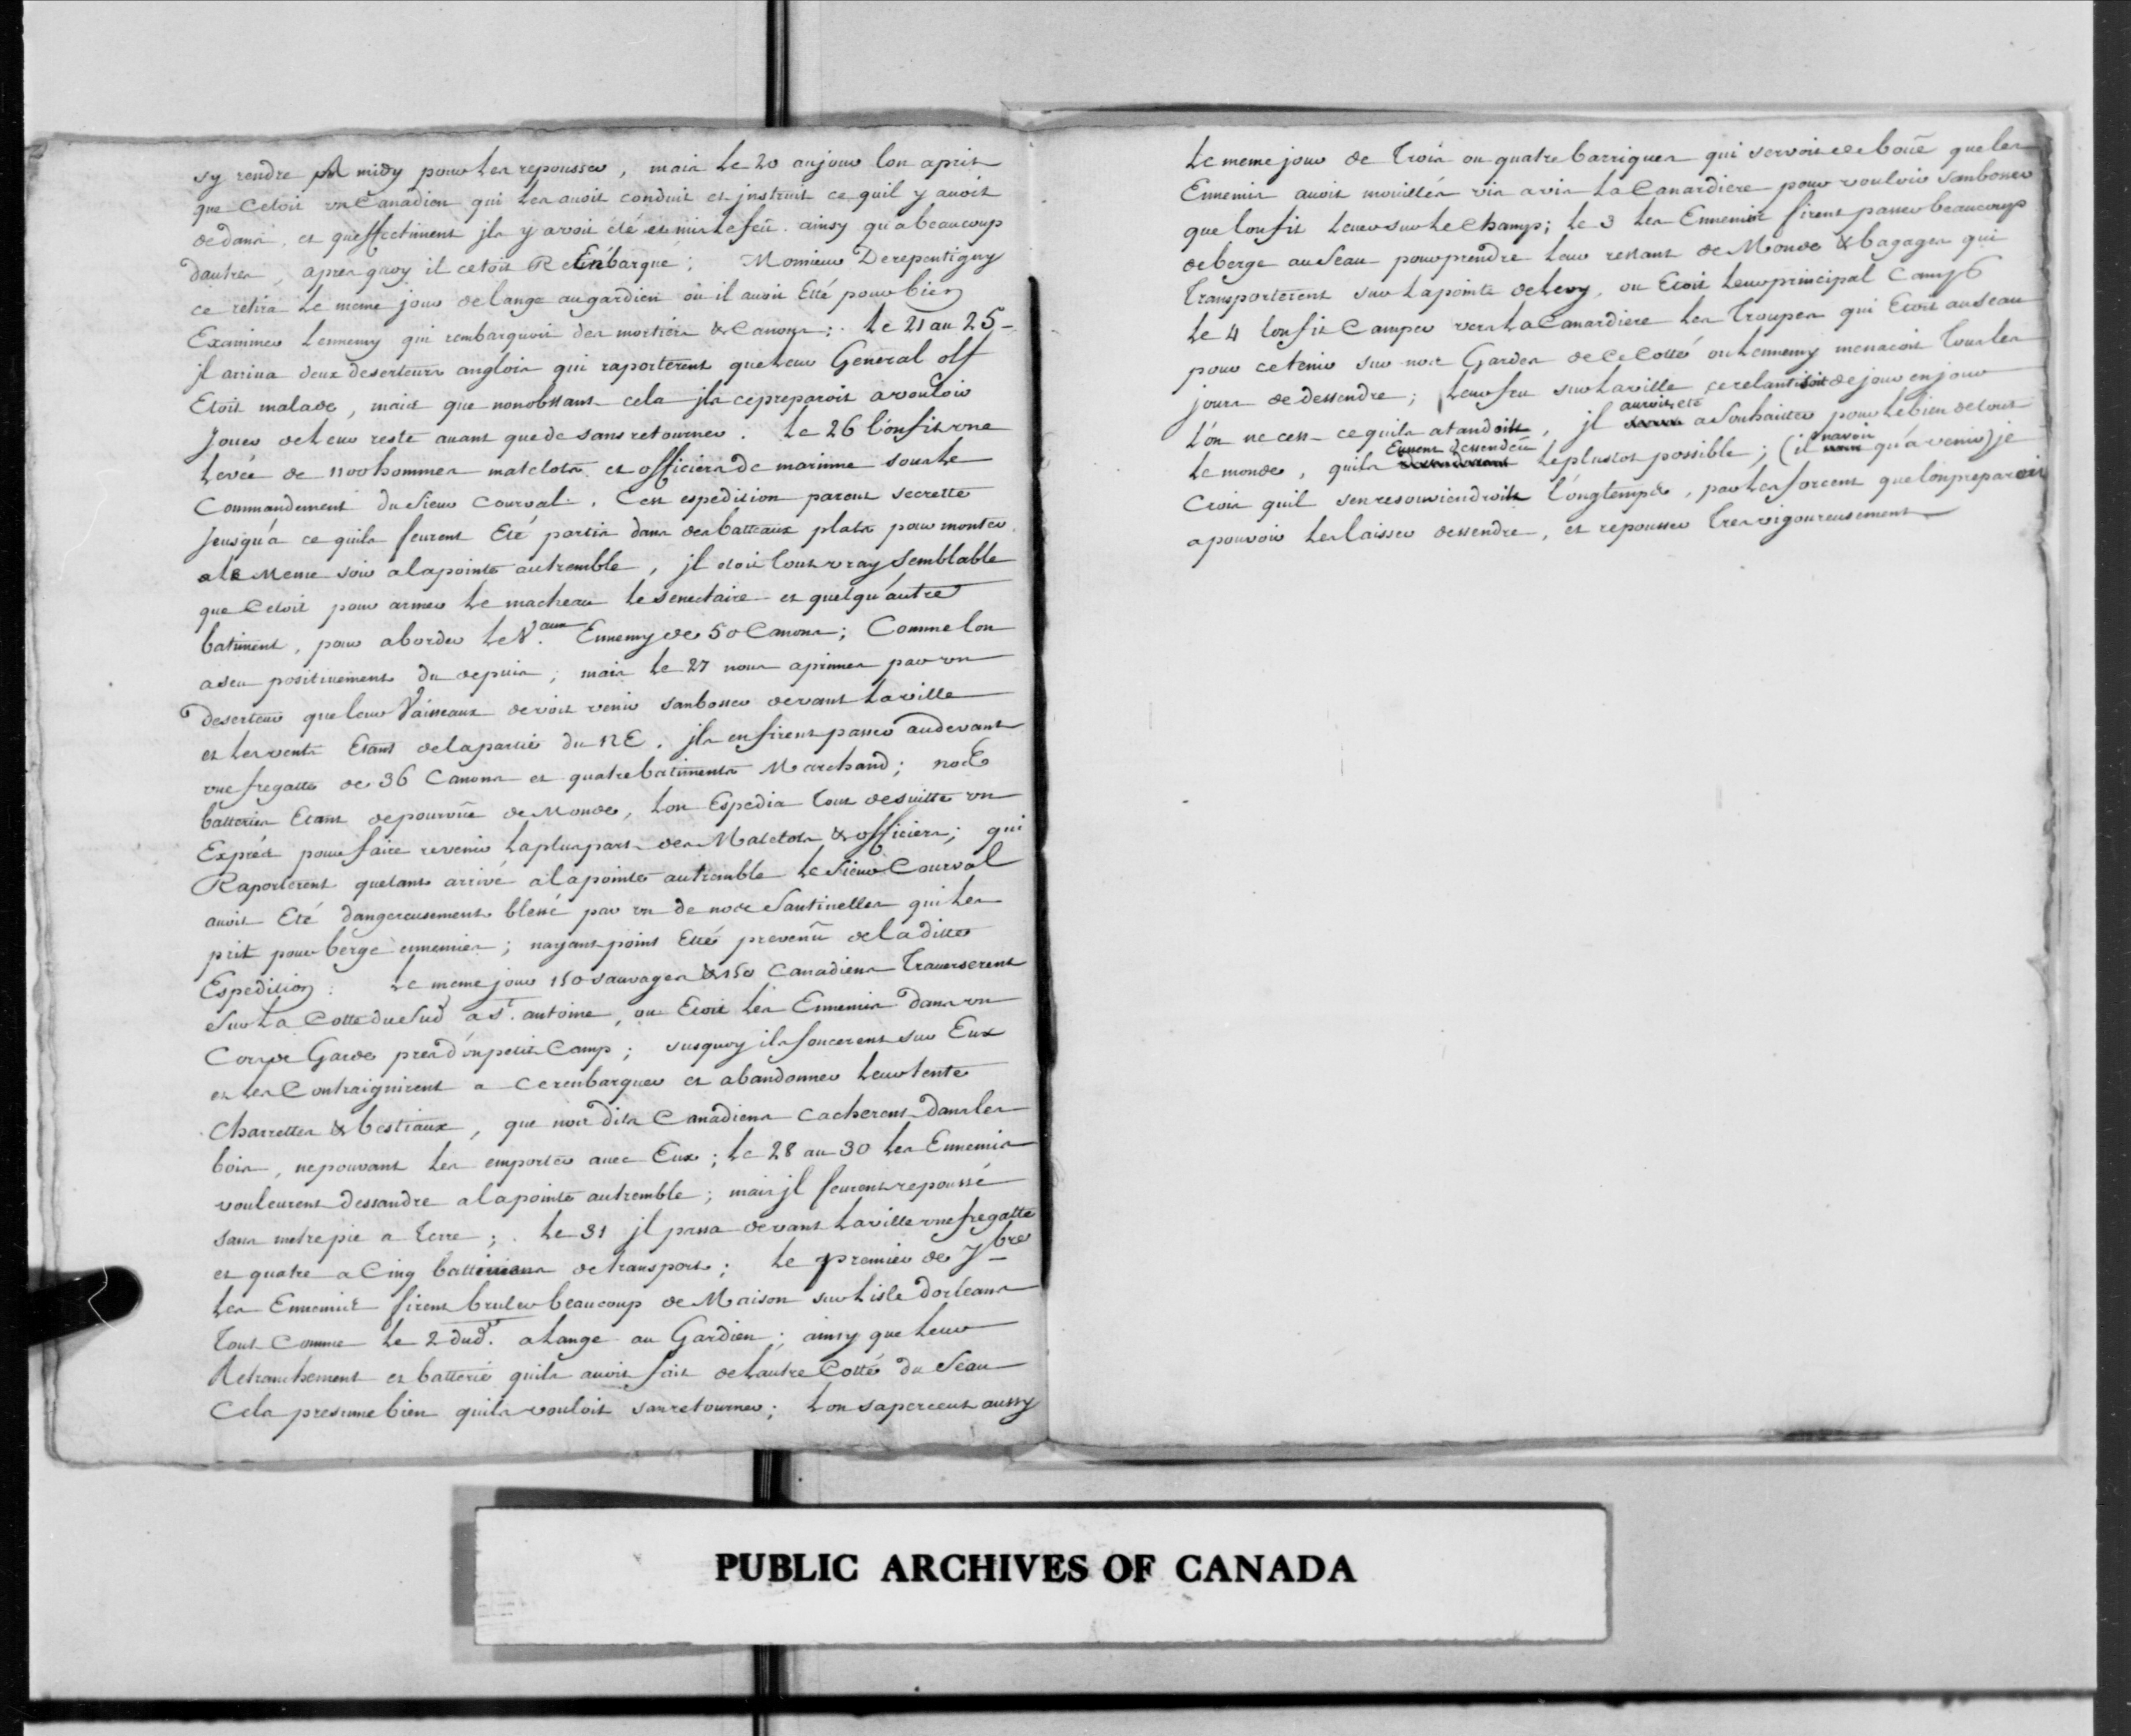 sy rendre a midy pour les repousser, mais le 20 aujour lon aprit
que Cetoit un Canadien qui les avoit conduit et jnstruit ce quil y avoit
dedans, et queffectiment jls y avoit été et mis le feü. ainsy qu'a beaucoup
dautres, apres quoy il cetoit Rembarqué; Monsieur Derepentigny
ce retira le meme jour de lange augardien où il avoit Etté pour bien
Examiner lennemy qui rembarquoit des mortiers & Canons; le 21 au 25
jl arriva deux deserteurs anglois qui raporterent que leur General olf
Etoit malade, mais que nonobstant cela jls cepreparoit a vouloir
Jouer deleur reste avant que de sans retourner. le 26 l'on fit une
levée de 1100 hommes matelots et officiers de marinne sous le
Commandement du Sieur Courval. Cett espedition parent secrette
Jeusqu'a ce quils feurent Eté partis dans des batteaux plats pour monter
ale Meme soir alapointe autremble, jl etoit tout vray semblable
que Cetoit pour armer le macheau le senectaire et quelqu'autre
batiment, pour aborder le V.aux Ennemy de 50 Canons; Comme lon
aseu positivement du depuis; mais le 27 nous aprimes par un
Deserteur que leur Vaisseaux devoit venir sanbosser devant laville
et les vents Etant delapartie du NE. jls en firent passer audevant
une fregatte de 36 Canons et quatre batiments Marchand; nos
batteries Etant depourvüe de Monde, lon Espedia tout desuitte un
Exprés pour faire revenir laplus part des Matelots & officiers; qui
Raporterent quetant arrivé alapointe autremble le Sieur Courval
avoit Eté dangereusement blessé par un de nos Santinelles qui les
prit pour berge ennemies; nayant point Etté prevenü deladitte
Espedition. Le meme jour 150 sauvages & 150 Canadiens Traverserent
Sur La Cotte du Sud a St. antoine, ou Etoit les Ennemis dans un
Corps de Garde pres d'un petit Camp; susquoy ils foncerent sur Eux
et les Contraignirent a cerenbarquer et abandonner leur tente
Charrettes & bestiaux, que nos dits Canadiens cacherent dans les
bois, nepouvant les emporter avec Eux; le 28 au 30 les Ennemis
vouleurent dessandre alapointe autremble; mais jl feurent repoussé
sans metre pie a Terre; le 31 jl passa devant laville une fregatte
et quatre a Cinq battimens de transport; le premier de 7bre
les Ennemis firent bruler beaucoup de Maison sur lisle dorleans
Tout Comme le 2 dud. alange au Gardien; ainsy que leur
Retranchement et batterie quils avoit fait delautre Cotté du Seau
Cela presume bien quils vouloit sanretourner; lon sapercent aussy
Le meme jour de Trois ou quatre barriques qui servoit de boüe que les
Ennemis avoit mouillés vis avis la Canardiere pour vouloir sanbosser
que lonfit lever sur le Champ; le 3 les Ennemis firent passer beaucoup
de berge au Seau pour prendre leur restant de Monde & bagages qui
Transporterent sur lapointe delevy, ou Etoit leur principal Camp
Le 4 lonfit Camper vers la Canardiere les Troupes qui Etoit auseau
pour cetenir sur nos Gardes de Ce Cotté ou lennemy menacoit Tous les
jours de dessendre; leur feu sur laville cerelantisoit de jour en jour
L'on ne cest cequils atandoit, jl auroit eté a Souhaitter pour lebien detout
le monde, quils Eussent dessendeü leplustot possible; (il navoit qu'a venir) je
Crois quil senresouviendroit longtemps, par les forcent que lonpreparoit
apouvoir les laisser dessendre, et repousser tres vigoureusement
PUBLIC ARCHIVES OF CANADA